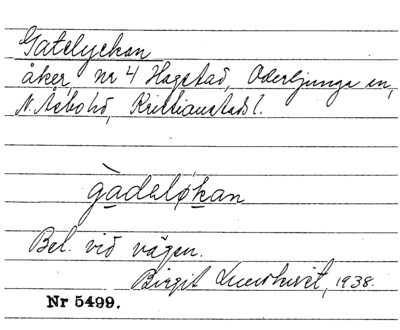 Gatelyckan
åker, nr 4 Hagstad, Oderljunga sn,
N. Åsbohd, Kristianstads l.
gàdeløkan
Bel. vid vägen.
Birgit Lundkvist, 1938.
Nr 5499.